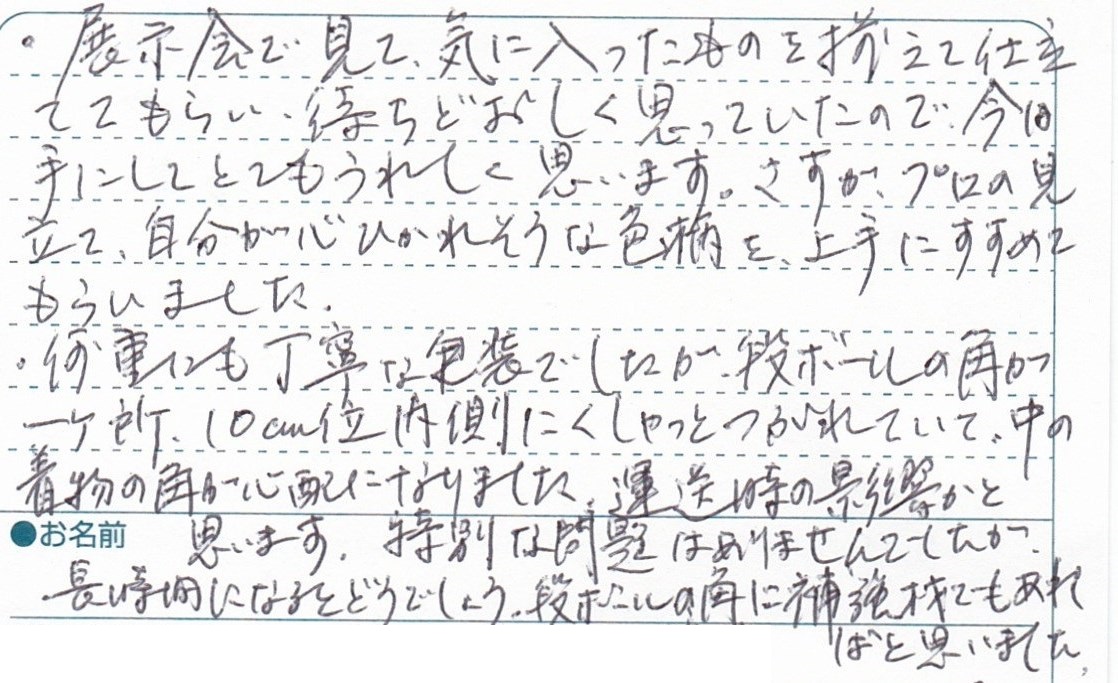 ・展示会で見て、気に入ったものを揃えて仕立
ててもらい、待ちどおしく思っていたので、今回
手にしてとてもうれしく思います。さすが、プロの見
立て、自分が心ひかれそうな色柄を、上手にすすめて
もらいました。
・何重にも丁寧な包装でしたが、段ボールの角が
一ケ所、10cm位内側にくしゃっとつぶれていて、中の
着物の角が心配になりました。運送時の影響かと
●お名前 思います。特別な問題はありませんでしたが、
長時間になるとどうでしょう。段ボールの角に補強材でもあれ
ばと思いました。